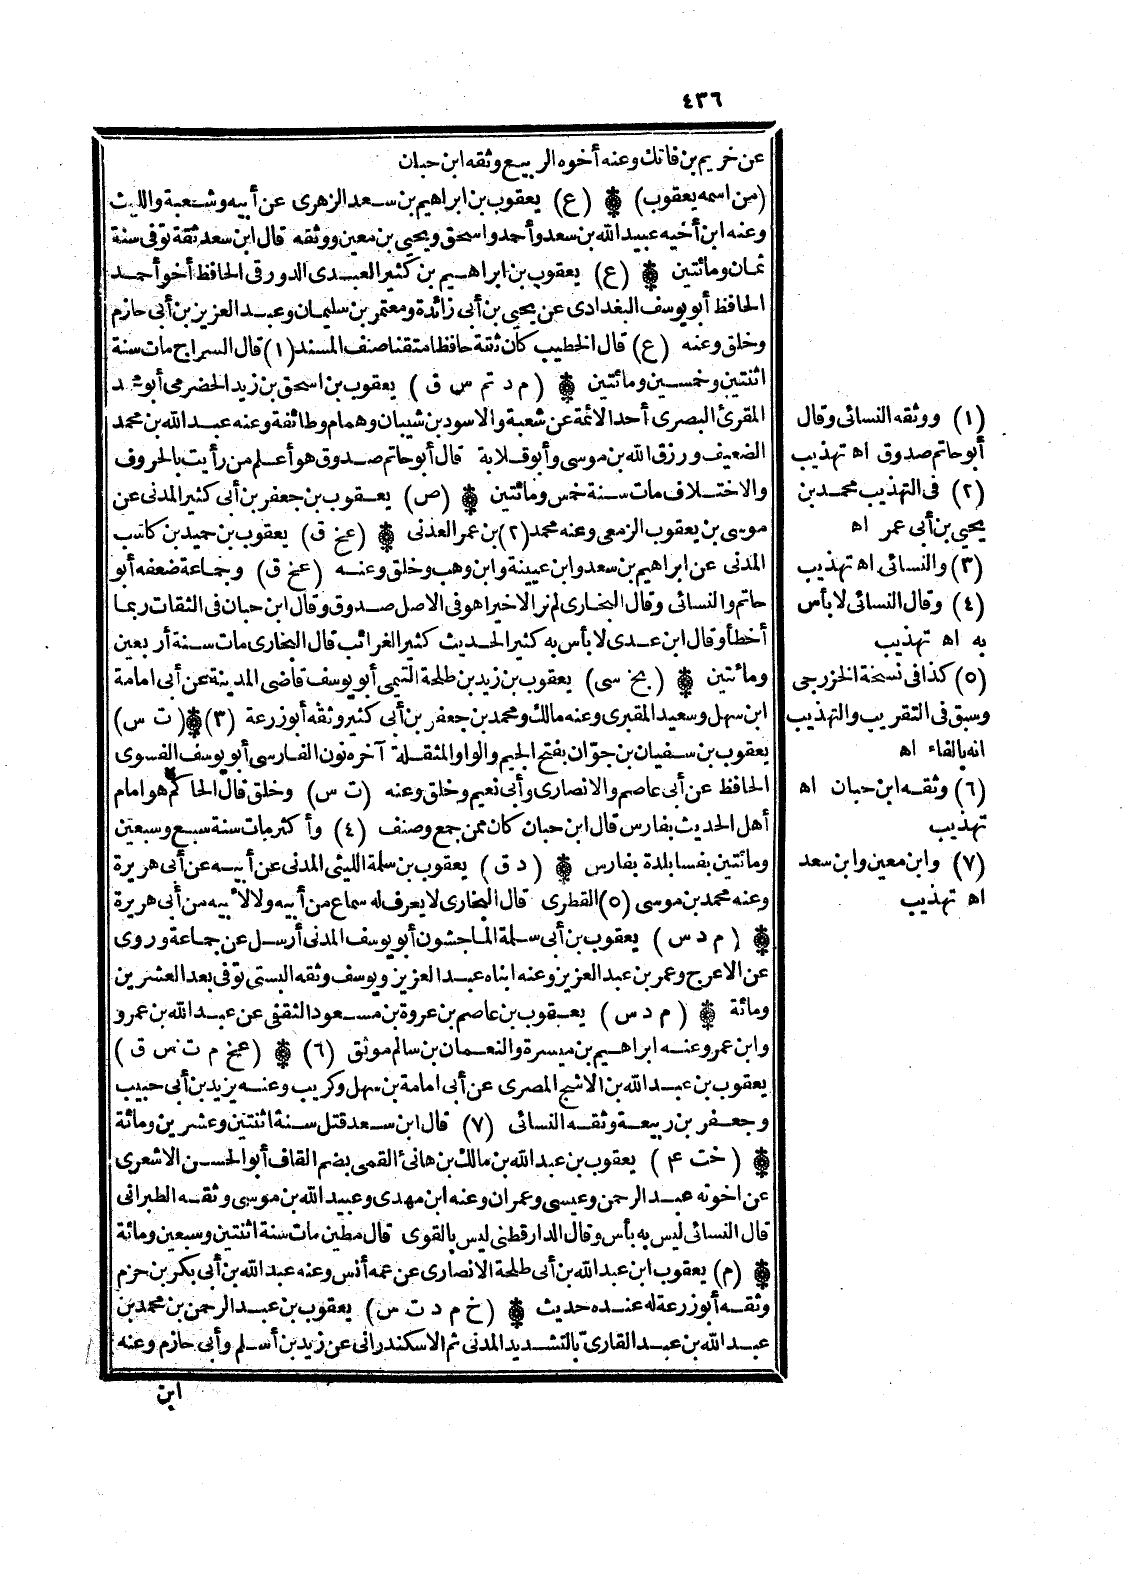 ٤٣٦
عن خريم بن فاتك وعنه أخوه الربيع وثقه ابن حبان
(من اسمه يعقوب) * (ع) يعقوب بن ابراهيم بن سعد الزهرى عن أبيه وشعبة والليث
وعنه ابن أخيه عبيد الله بن سعد وأحمد واسحق ويحيى بن معين ووثقه قال ابن سعد ثقة توفى سنة
ثمان ومائتين * (ع) يعقوب بن ابراهيم بن كثير العبدى الدورقى الحافظ أخو أحمد
الحافظ أبو يوسف البغدادى عن يحيى بن أبى زائدة ومعتمر بن سليمان وعبد العزيز بن أبى حازم
وخلق وعنه (ع) قال الخطيب كان ثقة حافظا متقنا صنف المسند (١) قال السراج مات سنة
اثنتين وخمسين ومائتين * (م د تم س ق) يعقوب بن اسحق بن زيد الحضرمى أبو محمد
المقرئ البصرى أحد الائمة عن شعبة والاسود بن شيبان وهمام وطائفة وعنه عبد الله بن محمد
الضعيف ورزق الله بن موسى وأبو قلابة قال أبو حاتم صدوق هو أعلم من رأيت بالحروف
والاختلاف مات سنة خمس ومائتين * (ص) يعقوب بن جعفر بن أبى كثير المدنى عن
موسى بن يعقوب الزمعى وعنه محمد (٢) بن عمر العدنى * (عخ ق) يعقوب بن حميد بن كاسب
المدنى عن ابراهيم بن سعد وابن عيينة وابن وهب وخلق وعنه (عخ ق) وجماعة ضعفه أبو
حاتم والنسائى وقال البخارى لم نر الا خيرا هو فى الاصل صدوق وقال ابن حبان فى الثقات ربما
أخطأ وقال ابن عدى لا بأس به كثير الحديث كثير الغرائب قال البخارى مات سنة أربعين
ومائتين * (بخ سى) يعقوب بن زيد بن طلحة التيمى أبو يوسف قاضى المدينة عن أبى امامة
ابن سهل وسعيد المقبرى وعنه مالك ومحمد بن جعفر بن أبى كثير وثقه أبو زرعة (٣) * (ت س)
يعقوب بن سفيان بن جوّان بفتح الجيم والواو المثقلة آخره نون الفارسى أبو يوسف الفسوى
الحافظ عن أبى عاصم والانصارى وأبى نعيم وخلق وعنه (ت س) وخلق قال الحاكم هو امام
أهل الحديث بفارس قال ابن حبان كان ممن جمع وصنف (٤) وأكثر مات سنة سبع وسبعين
ومائتين بفسا بلدة بفارس * (د ق) يعقوب بن سلمة الليثى المدنى عن أبيه عن أبى هريرة
وعنه محمد بن موسى (٥) القطرى قال البخارى لا يعرف له سماع من أبيه ولا لأبيه من أبى هريرة
* (م د س) يعقوب بن أبى سلمة الماجشون أبو يوسف المدنى أرسل عن جماعة وروى
عن الاعرج وعمر بن عبد العزيز وعنه ابناه عبد العزيز ويوسف وثقه البستى توفى بعد العشرين
ومائة * (م د س) يعقوب بن عاصم بن عروة بن مسعود الثقفى عن عبد الله بن عمرو
وابن عمر وعنه ابراهيم بن ميسرة والنعمان بن سالم موثق (٦) * (عخ م ت س ق)
يعقوب بن عبد الله بن الاشج المصرى عن أبى امامة بن سهل وكريب وعنه يزيد بن أبى حبيب
وجعفر بن ربيعة وثقه النسائى (٧) قال ابن سعد قتل سنة اثنتين وعشرين ومائة
* (خت ٤) يعقوب بن عبد الله بن مالك بن هانئ القمى بضم القاف أبو الحسن الاشعرى
عن اخوته عبد الرحمن وعيسى وعمران وعنه ابن مهدى وعبيد الله بن موسى وثقه الطبرانى
قال النسائى ليس به بأس وقال الدارقطنى ليس بالقوى قال مطين مات سنة اثنتين وسبعين ومائة
* (م) يعقوب ابن عبد الله بن أبى طلحة الانصارى عن عمه أنس وعنه عبد الله بن أبى بكر بن حزم
وثقه أبو زرعة له عنده حديث * (خ م د ت س) يعقوب بن عبد الرحمن بن محمد بن
عبد الله بن عبد القارىّ بالتشديد المدنى ثم الاسكندرانى عن زيد بن أسلم وأبى حازم وعنه
ابن
(١) ووثقه النسائى وقال
أبو حاتم صدوق اه تهذيب
(٢) فى التهذيب محمد بن
يحيى بن أبى عمر اه
(٣) والنسائى اه تهذيب
(٤) وقال النسائى لا بأس
به اه تهذيب
(٥) كذا فى نسخة الخزرجى
وسبق فى التقريب والتهذيب
انه بالفاء اه
(٦) وثقه ابن حبان اه
تهذيب
(٧) وابن معين وابن سعد
اه تهذيب